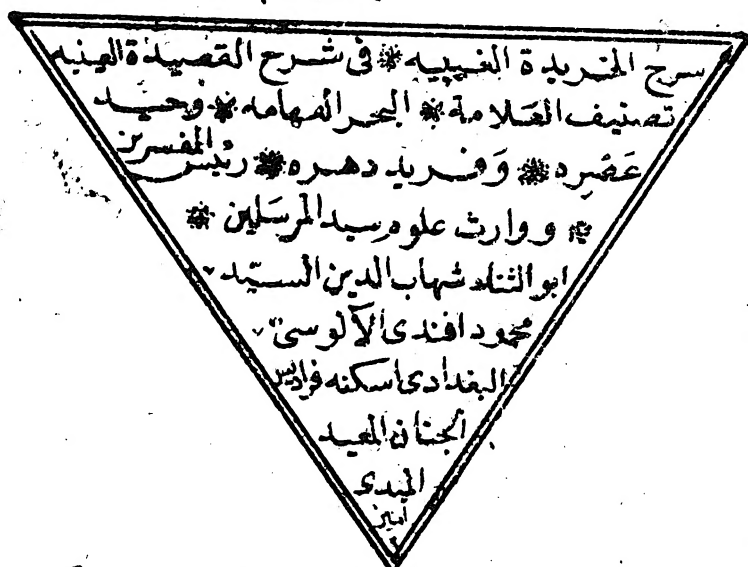 سرح الخريدة الغيبيه * فى شرح القصيدة العينيه
تصنيف العلامة * البحر الفهامه * وحيد
عصره * وفريد دهره * رئيس المفسرين
* ووارث علوم سيد المرسلين *
ابو الثناء شهاب الدين السيد
محمود افندى الآلوسى
البغدادى اسكنه فراديس
الجنان المعيد
المبدى
امين